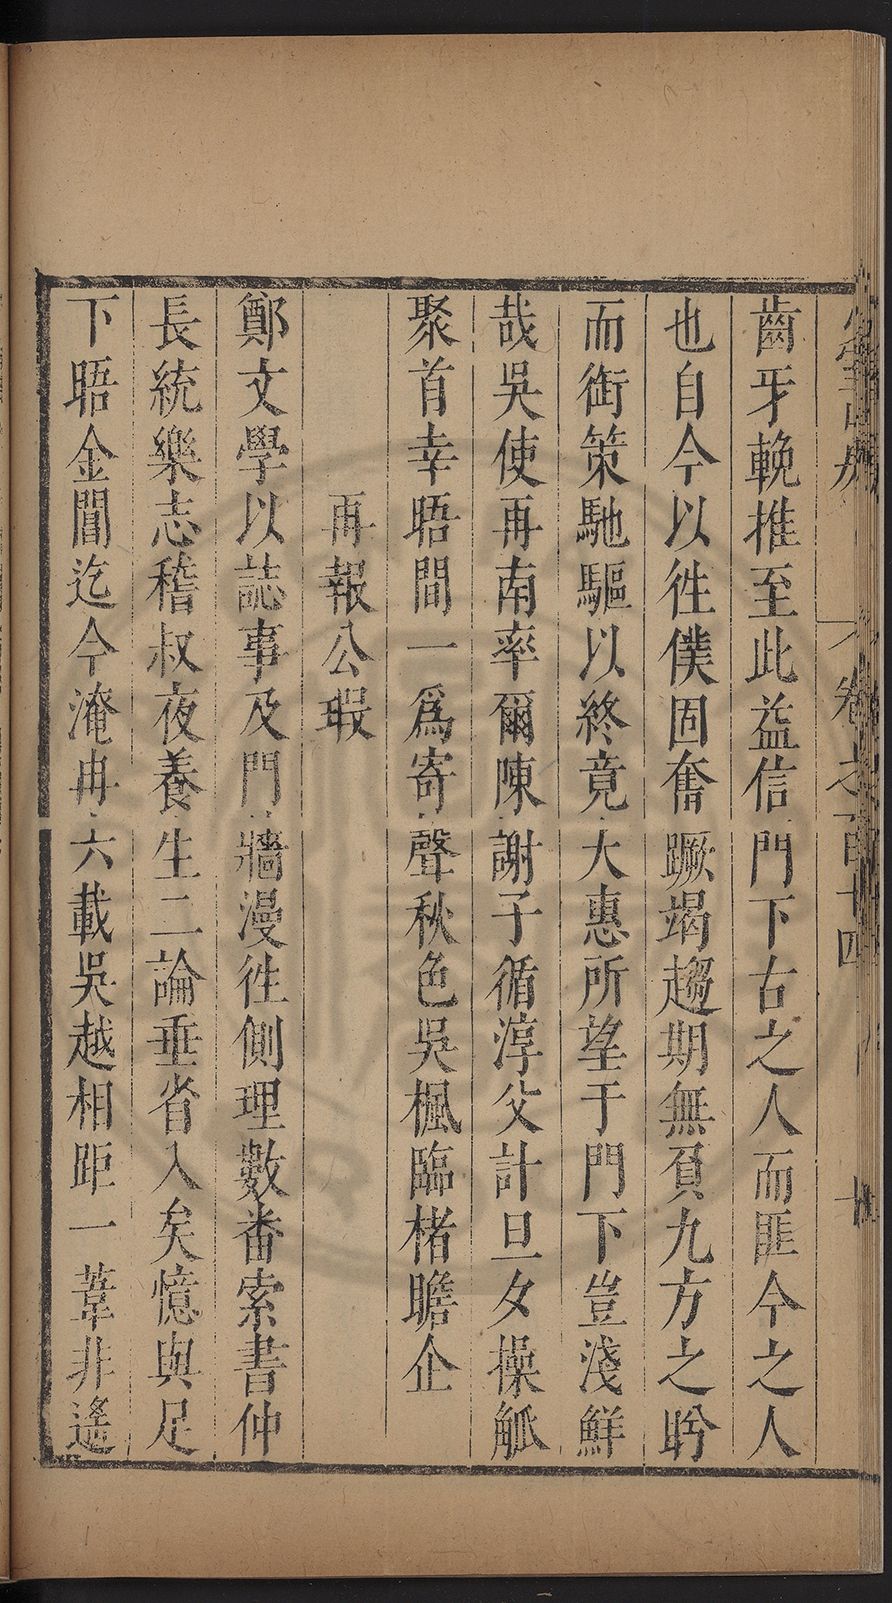 齒牙輓推至此益信門下古之人而匪今之人
也自今以徃僕固奮蹶竭趨期無負九方之盻
而銜策馳驅以終竟大惠所望于門下豈淺鮮
哉吳使再南率爾陳謝子循淳父計旦夕操觚
聚首幸晤間一爲寄聲秋色吳楓臨楮瞻企
再報公瑕
鄭文學以誌事及門牆漫徃側理數番索書仲
長統樂志稽叔夜養生二論垂省入矣憶與足
下晤金閶迄今淹冉六載吳越相距一葦非遙
卷之百十四